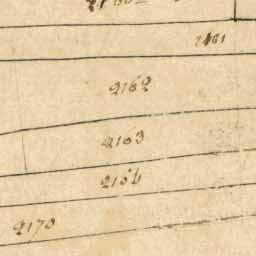 2161
2162
2163
2164
2170